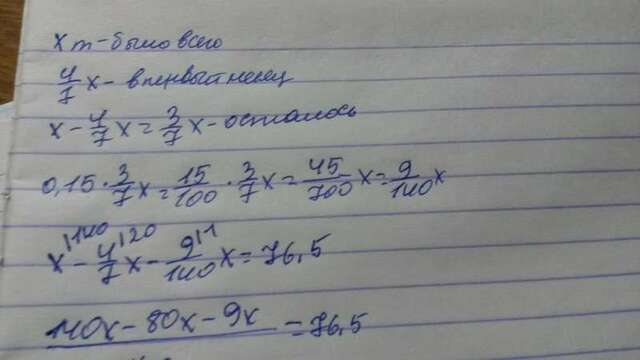 x т - было всего
4/7 x - в первый месяц
x - 4/7 x = 3/7 x - осталось
0,15 · 3/7 x = 15/100 · 3/7 x = 45/700 x = 9/140 x
x |140 - 4/7 |20 x - 9/140 |1 x = 76,5
140x - 80x - 9x = 76,5